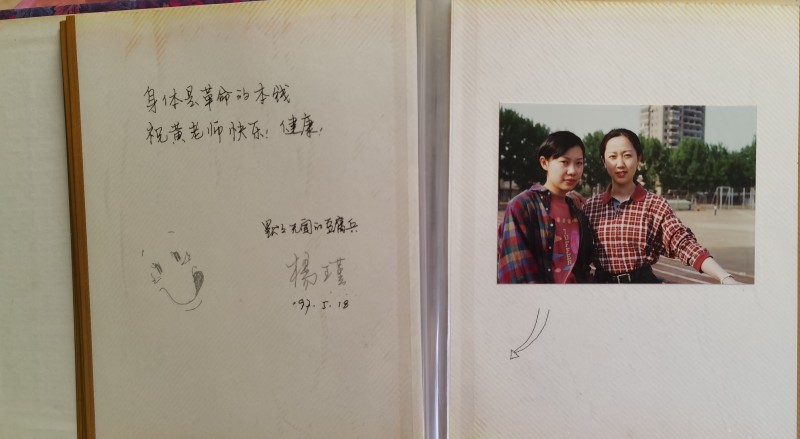 身体是革命的本钱
祝黄老师快乐！健康！
默默无闻的豆腐兵
杨瑾
'97.5.18